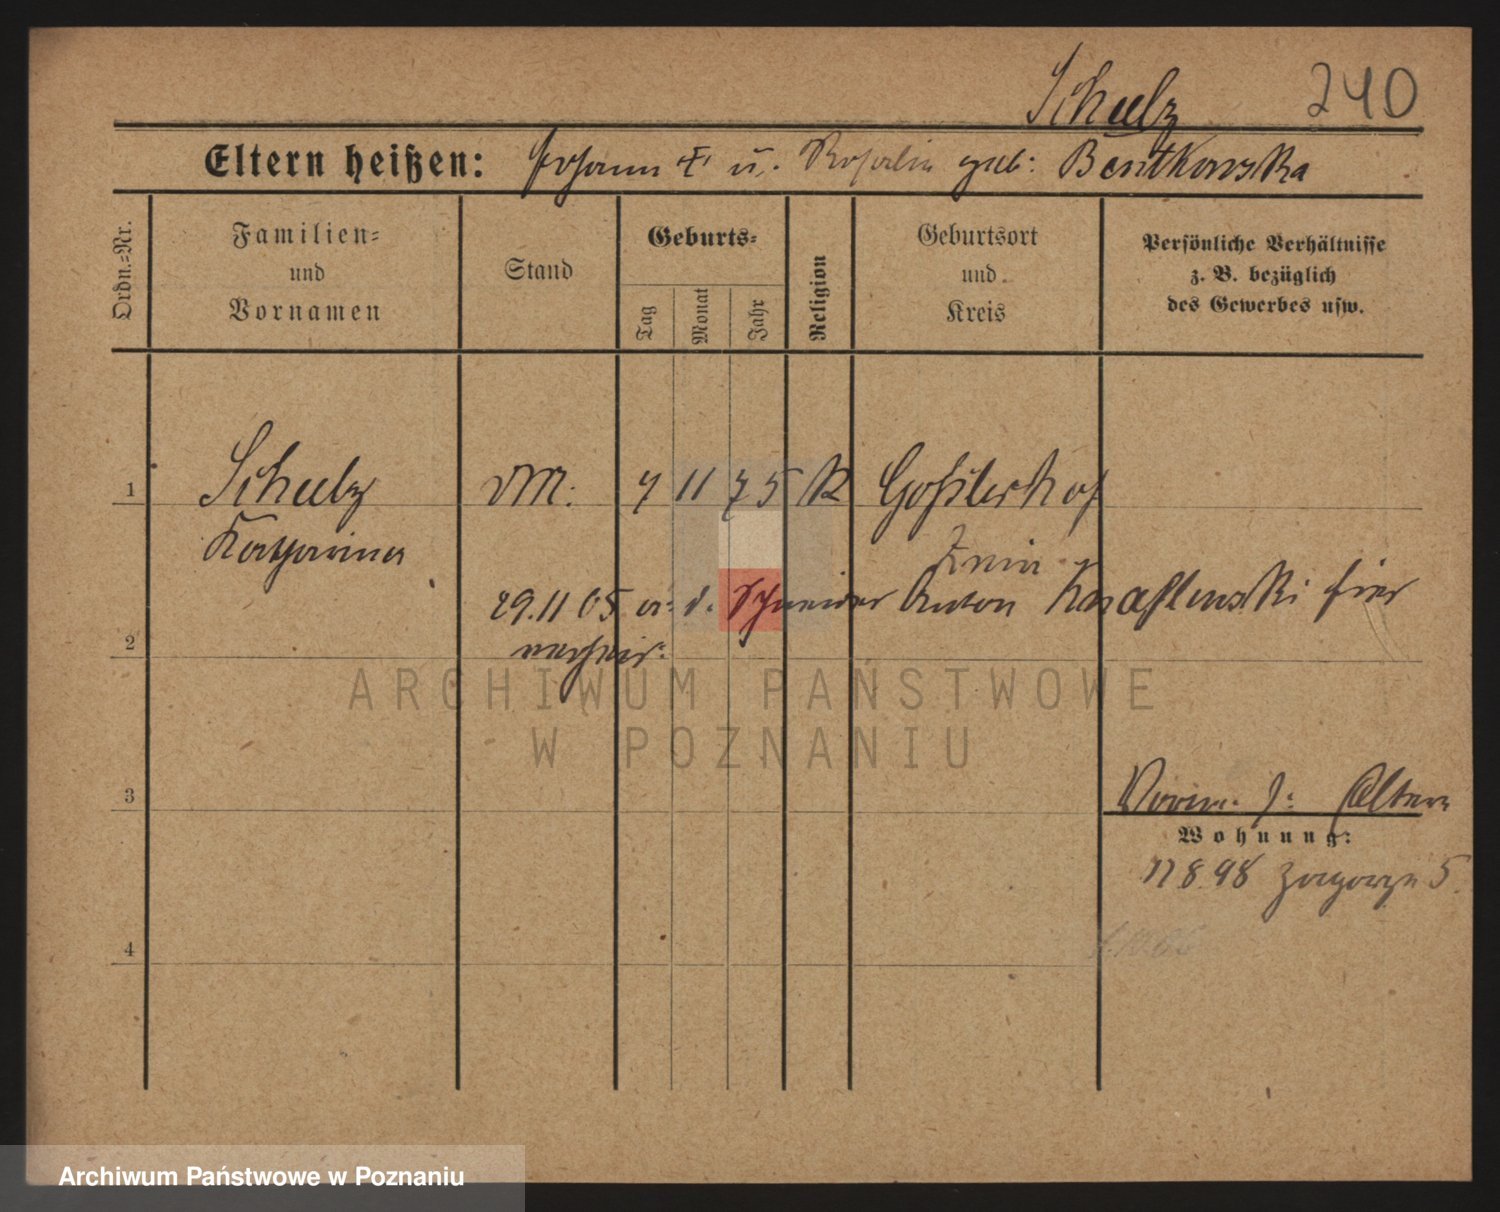 Schulz 240
Eltern heißen: Johann † u. Rosalie geb: Bentkowska
Ordn.-Nr.
Familien-
und
Vornamen
Stand
Geburts-
Tag
Monat
Jahr
Religion
Geburtsort
und
Kreis
Persönliche Verhältnisse
z. B. bezüglich
des Gewerbes usw.
1 Schulz M. 7 11 75 K Goßlershof
Katharina Znin
29.11 05 m. d. Schneider Anton hier
verheir:
2
ARCHIWUM PAŃSTWOWE
W POZNANIU
3 Eltern
Wohnung:
17 8 98 Zagorze 5.
4
Archiwum Państwowe w Poznaniu